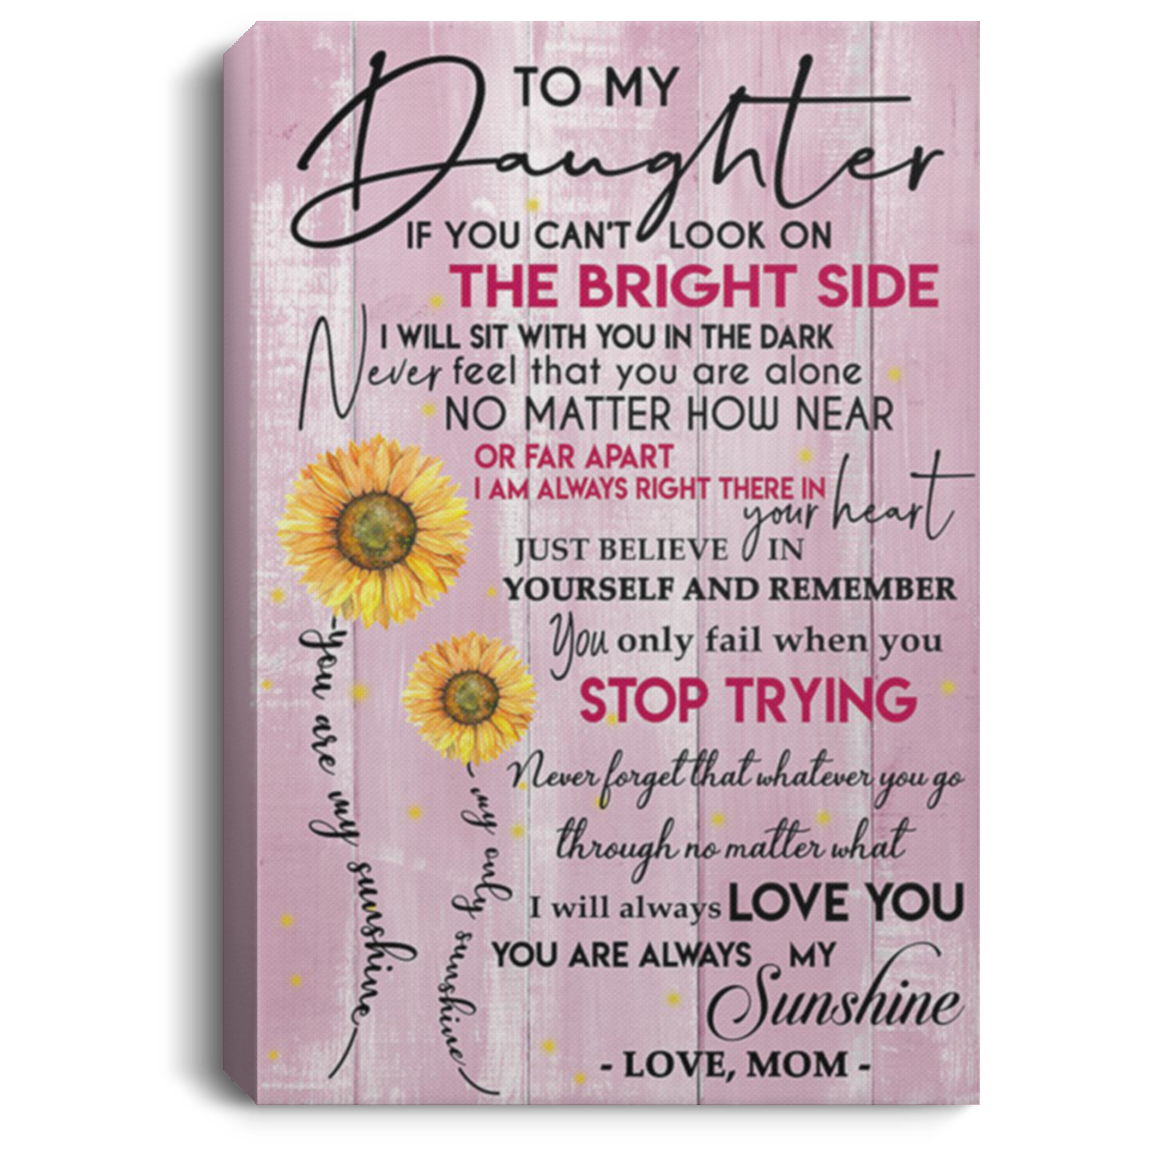 TO MY
Daughter
IF YOU CAN'T LOOK ON
THE BRIGHT SIDE
I WILL SIT WITH YOU IN THE DARK
Never feel that you are alone
NO MATTER HOW NEAR
OR FAR APART
I AM ALWAYS RIGHT THERE IN
your heart
JUST BELIEVE IN
YOURSELF AND REMEMBER
You only fail when you
STOP TRYING
Never forget that whatever you go
through no matter what
I will always LOVE YOU
YOU ARE ALWAYS MY
Sunshine
- LOVE, MOM -
you are my sunshine
my only sunshine